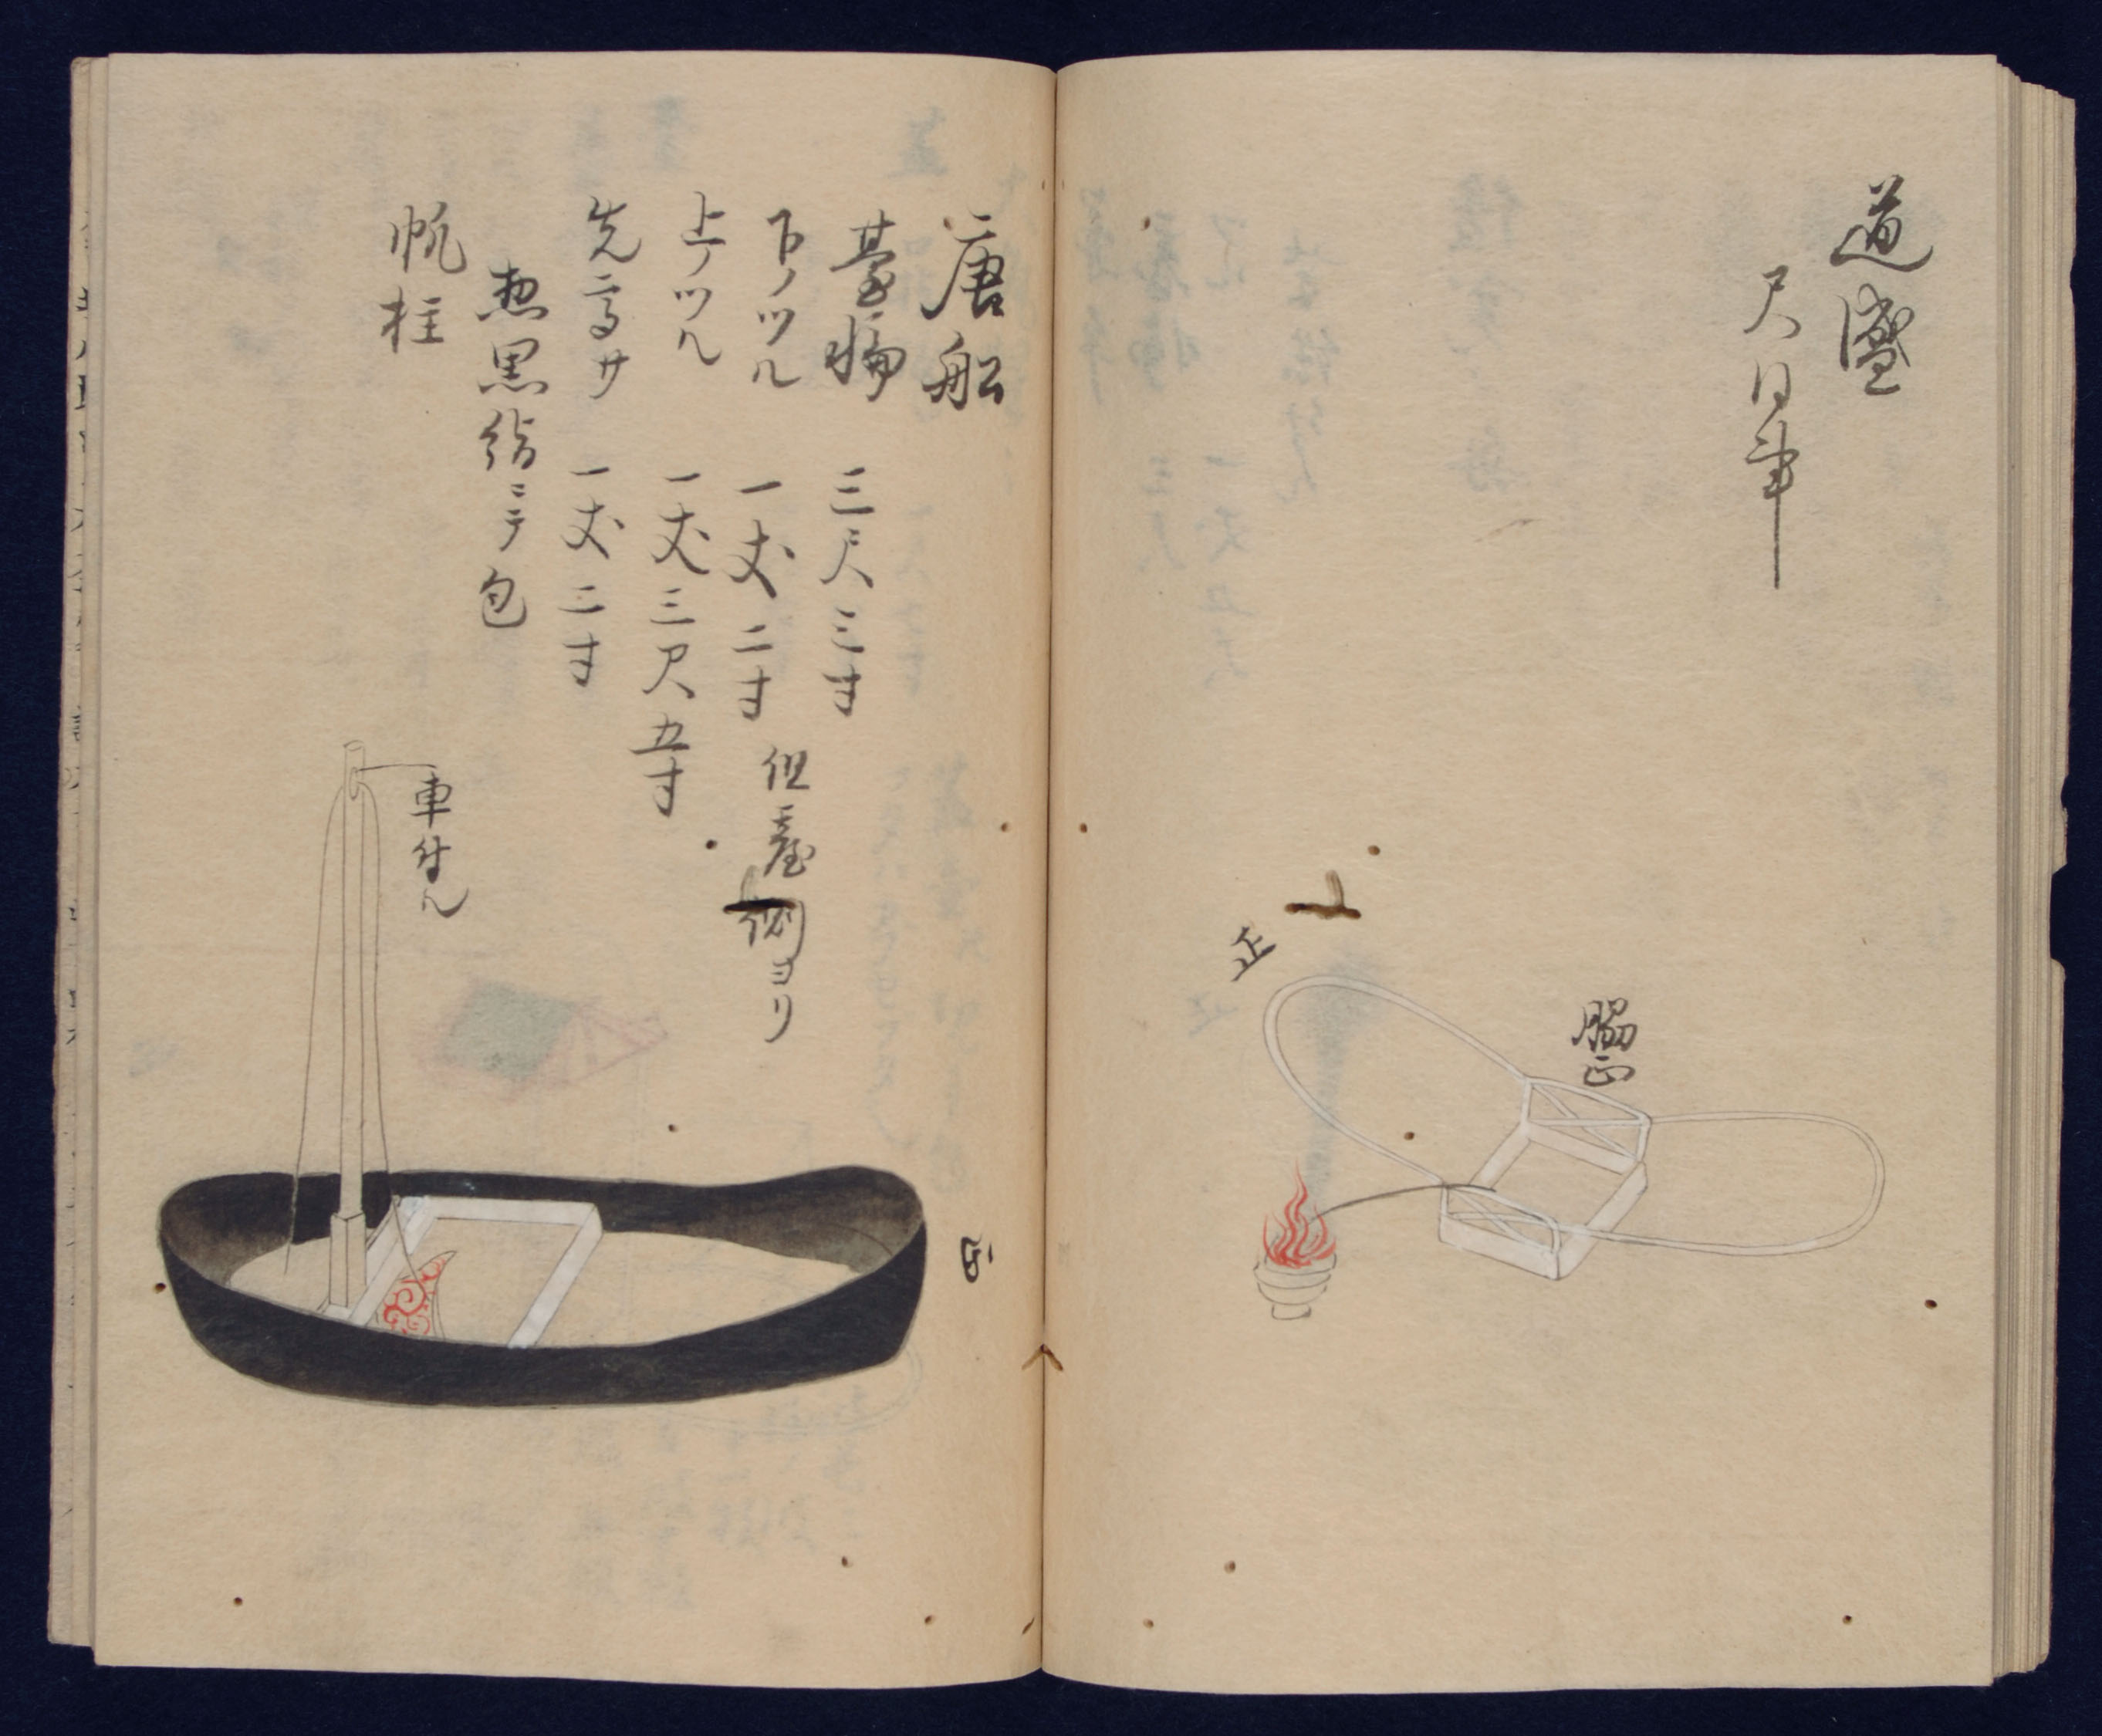 道盛
尺同事
正
脇正
唐船
臺幅 三尺三寸
下ノツル 一丈二寸 但臺側ヨリ
上ノツル 一丈三尺五寸
先高サ 一丈二寸
惣黒緞ニテ包
帆柱
車付ル
正